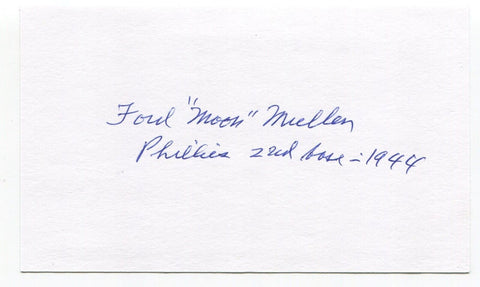 Ford "Moon" Mullen
Phillies 2nd base - 1944